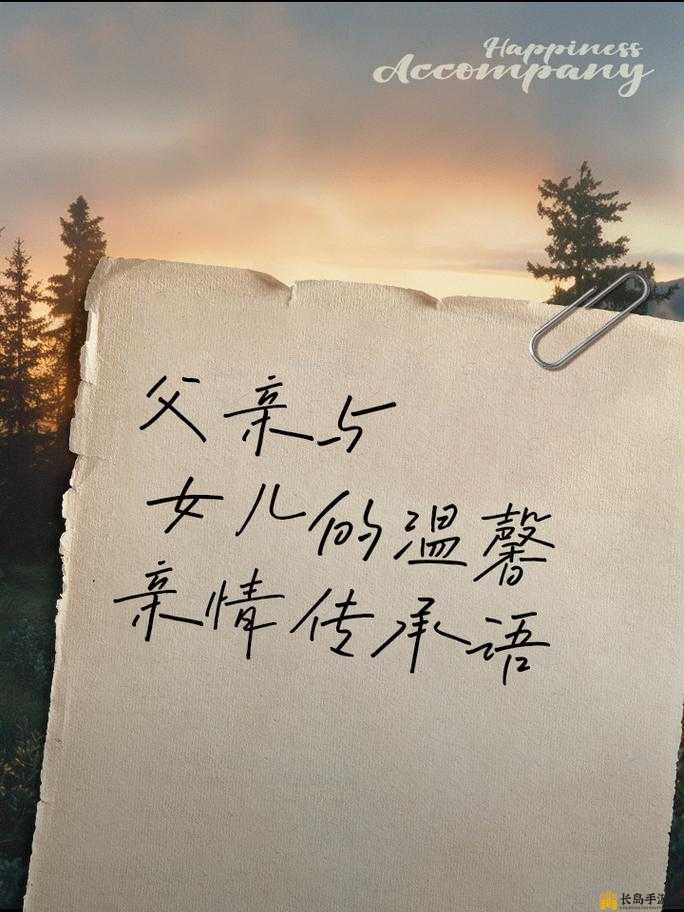 Happiness
Accompany
父亲与
女儿的温馨
亲情传承语
长岛手游